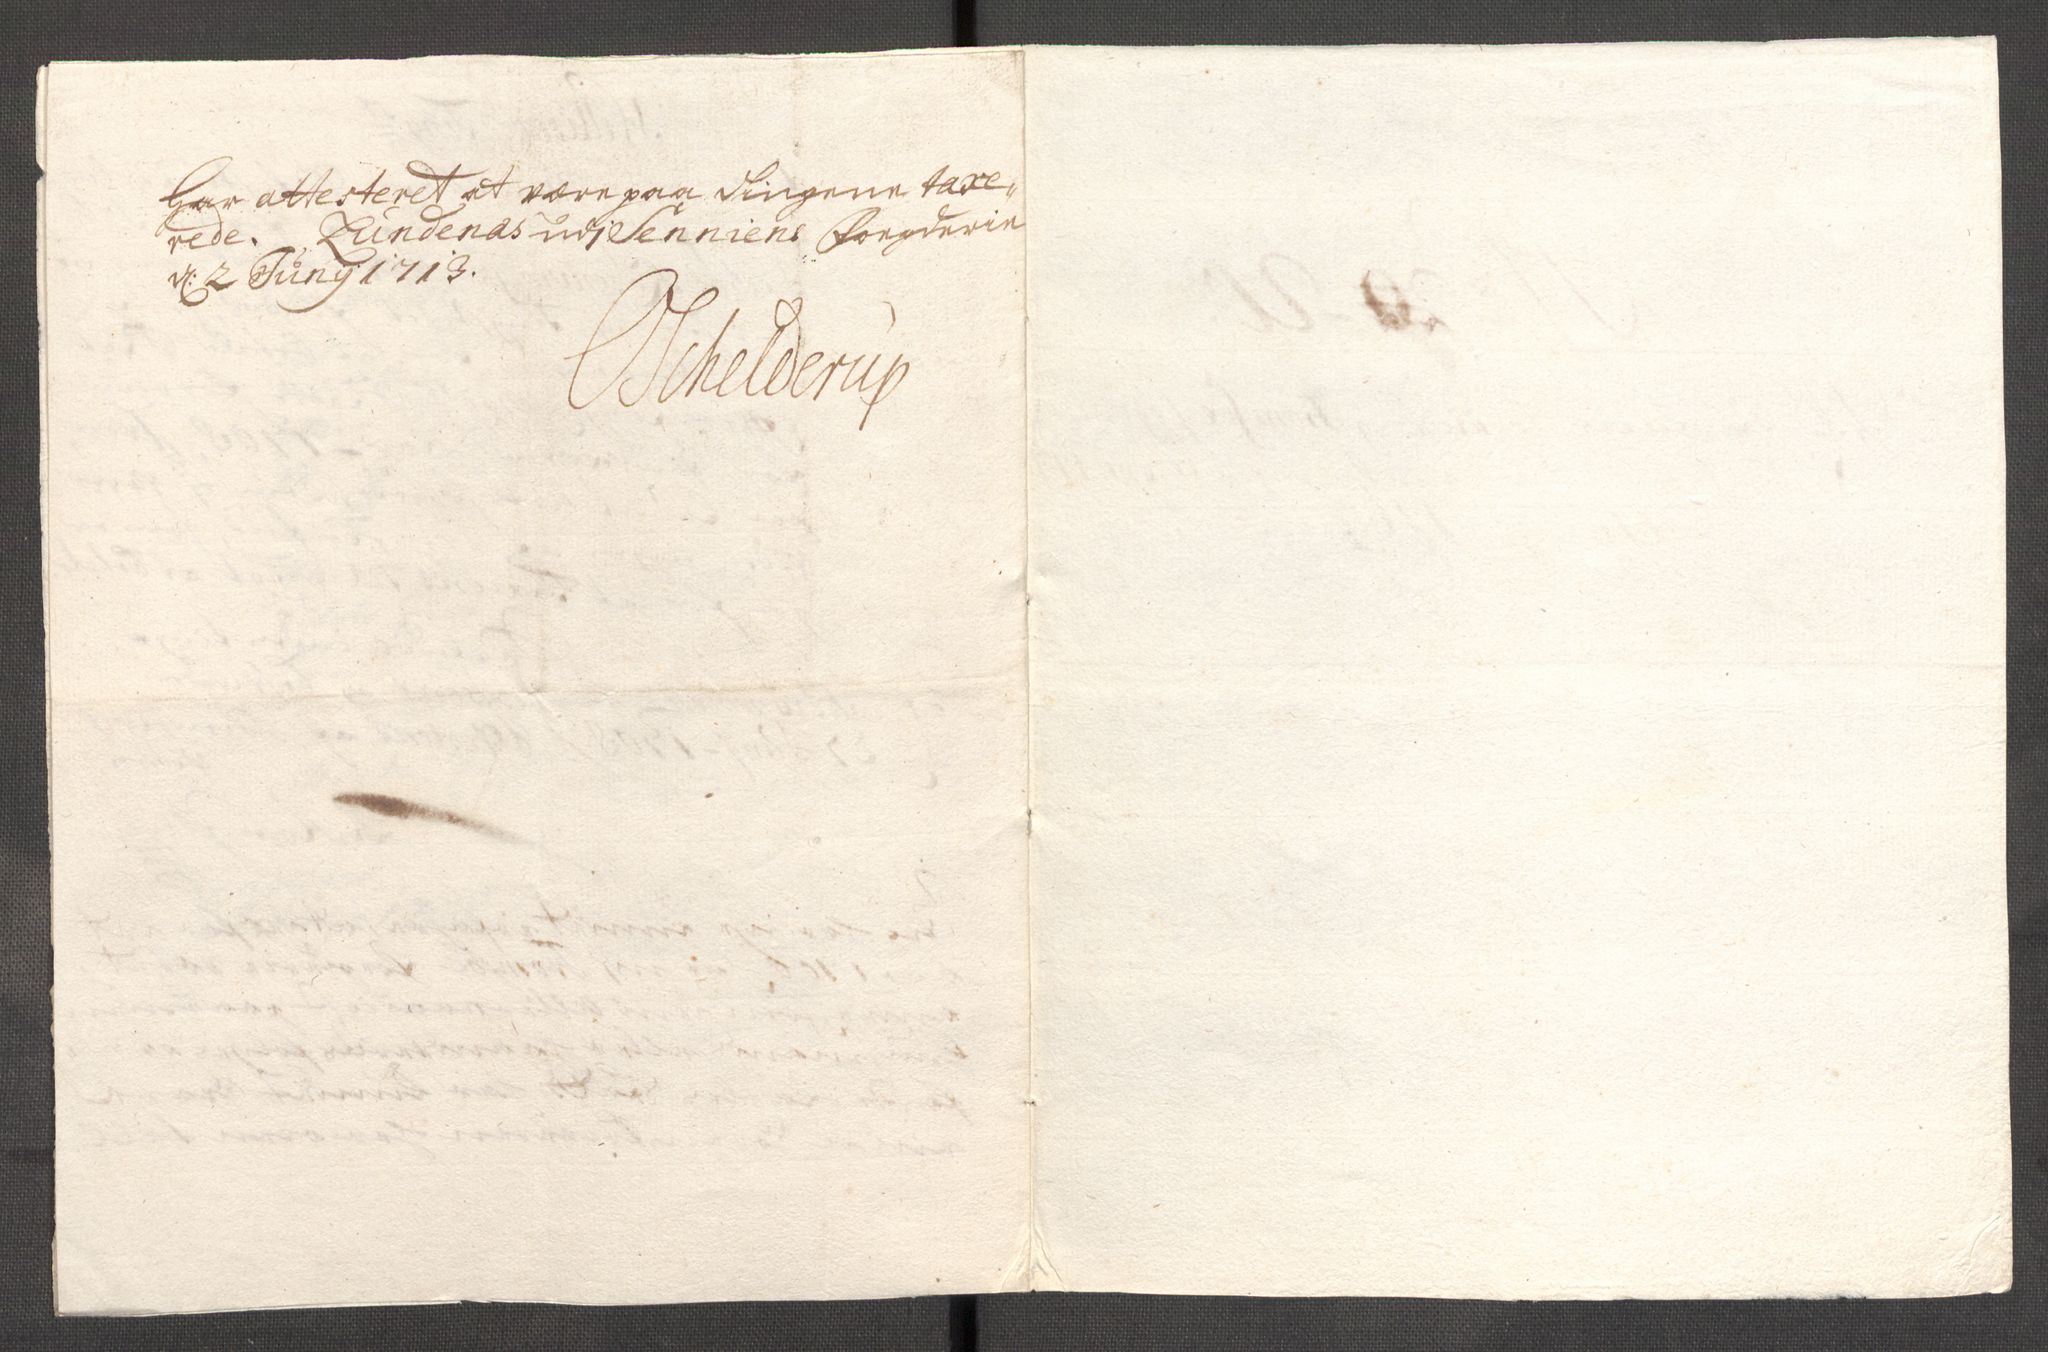 har attesteret at være paa Tingene taxe„
rede. Lundenæs udj Senniens Foegderie
d: 2 Junÿ 1713.
OSchelderup